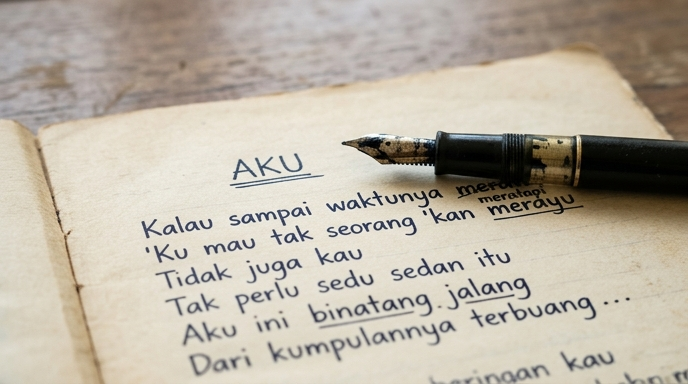 AKU
Kalau sampai waktunya
meratapi
'Ku mau tak seorang 'kan merayu
Tidak juga kau
Tak perlu sedu sedan itu
Aku ini binatang jalang
Dari kumpulannya terbuang ...
kau